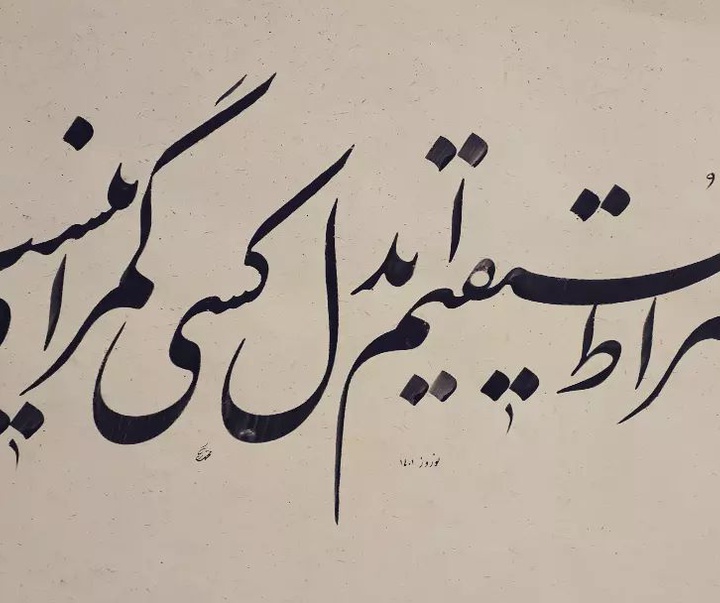 صراط مستقیم ای دل کسی گمراه نیست
نوروز ۱۴۰۱